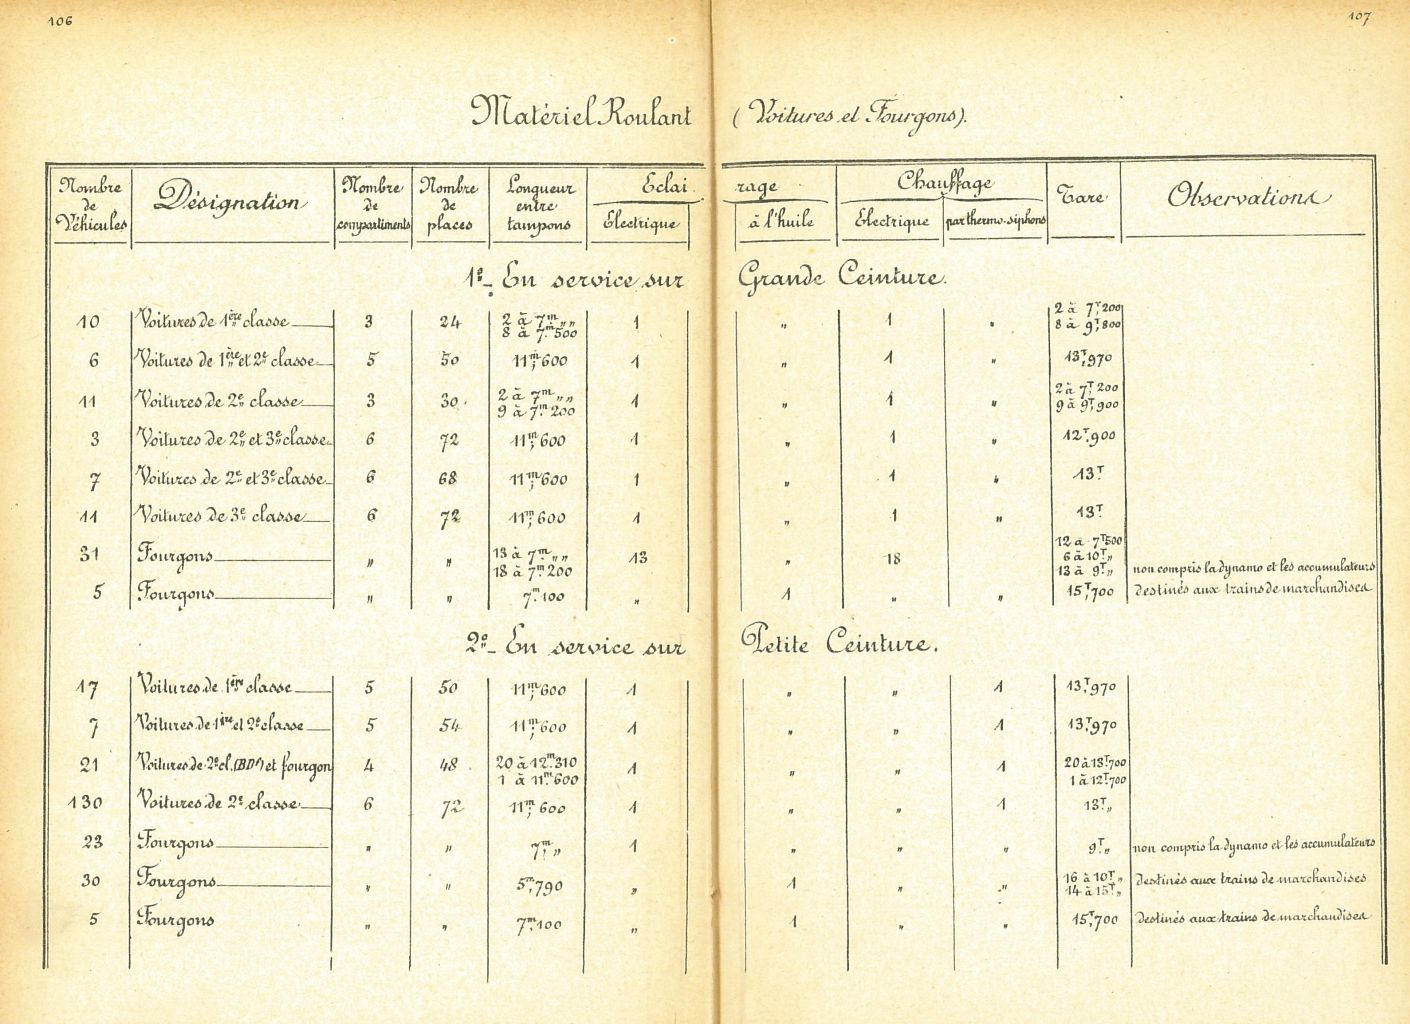 106
107
Matériel Roulant (Voitures et Fourgons).
Nombre de Véhicules | Désignation | Nombre de compartiments | Nombre de places | Longueur entre tampons | Eclairage | Chauffage | Tare | Observations
Electrique | à l'huile | Electrique | par thermo-siphons
1º_ En service sur Grande Ceinture.
10 | Voitures de 1ère classe | 3 | 24 | 2 à 7m,,, 8 à 7m,500 | 1 | " | 1 | " | 2 à 7T,200 8 à 9T,800
6 | Voitures de 1ère et 2e classe | 5 | 50 | 11m,600 | 1 | " | 1 | " | 13T,970
11 | Voitures de 2e classe | 3 | 30 | 2 à 7m,,, 9 à 7m,200 | 1 | " | 1 | " | 2 à 7T,200 9 à 9T,900
3 | Voitures de 2e et 3e classe | 6 | 72 | 11m,600 | 1 | " | 1 | " | 12T,900
7 | Voitures de 2e et 3e classe | 6 | 68 | 11m,600 | 1 | " | 1 | " | 13T
11 | Voitures de 3e classe | 6 | 72 | 11m,600 | 1 | " | 1 | " | 13T
31 | Fourgons | " | " | 13 à 7m,,, 18 à 7m,200 | 13 | " | 18 | 12 à 7T,500 6 à 10T,, 13 à 9T,, | non compris la dynamo et les accumulateurs
5 | Fourgons | " | " | 7m,100 | " | 1 | " | " | 15T,700 | Destinés aux trains de marchandises
2º_ En service sur Petite Ceinture.
17 | Voitures de 1ère classe | 5 | 50 | 11m,600 | 1 | " | " | 1 | 13T,970
7 | Voitures de 1ère et 2e classe | 5 | 54 | 11m,600 | 1 | " | " | 1 | 13T,970
21 | Voitures de 2e cl. (BDf) et fourgon | 4 | 48 | 20 à 12m,310 1 à 11m,600 | 1 | " | " | 1 | 20 à 13T,700 1 à 12T,700
130 | Voitures de 2e classe | 6 | 72 | 11m,600 | 1 | " | " | 1 | 13T,,
23 | Fourgons | " | " | 7m,,, | 1 | " | " | " | 9T,, | non compris la dynamo et les accumulateurs
30 | Fourgons | " | " | 5m,790 | " | 1 | " | " | 16 à 10T,, 14 à 15T,, | Destinés aux trains de marchandises
5 | Fourgons | " | " | 7m,100 | " | 1 | " | " | 15T,700 | Destinés aux trains de marchandises